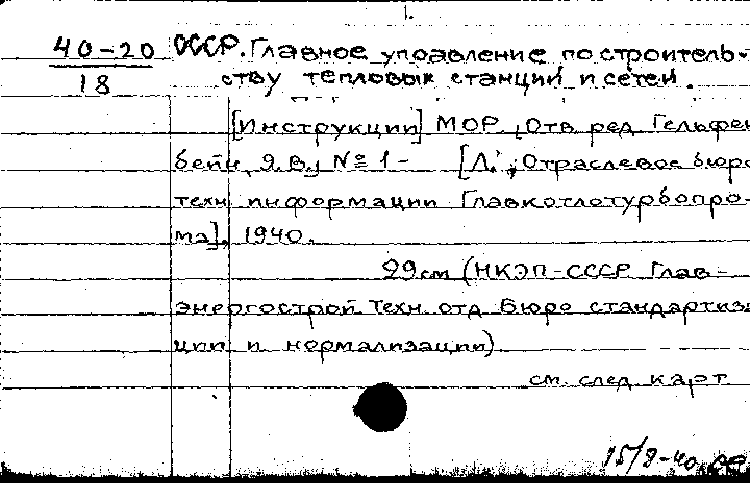 1.
40-20 СССР. Главное управление по строитель-
18 ству тепловых станций и сетей.
[Инструкции] МОР. [Отв ред Гельфен
бейн, Я.В.] № 1- [Л., Отраслевое бюро
техн информации Главкотлотурбопро-
ма], 1940.
29см (НКЭП-СССР Глав-
энергострой Техн. отд Бюро стандартиза
ции и нормализации)
см. след. карт
15/8-40